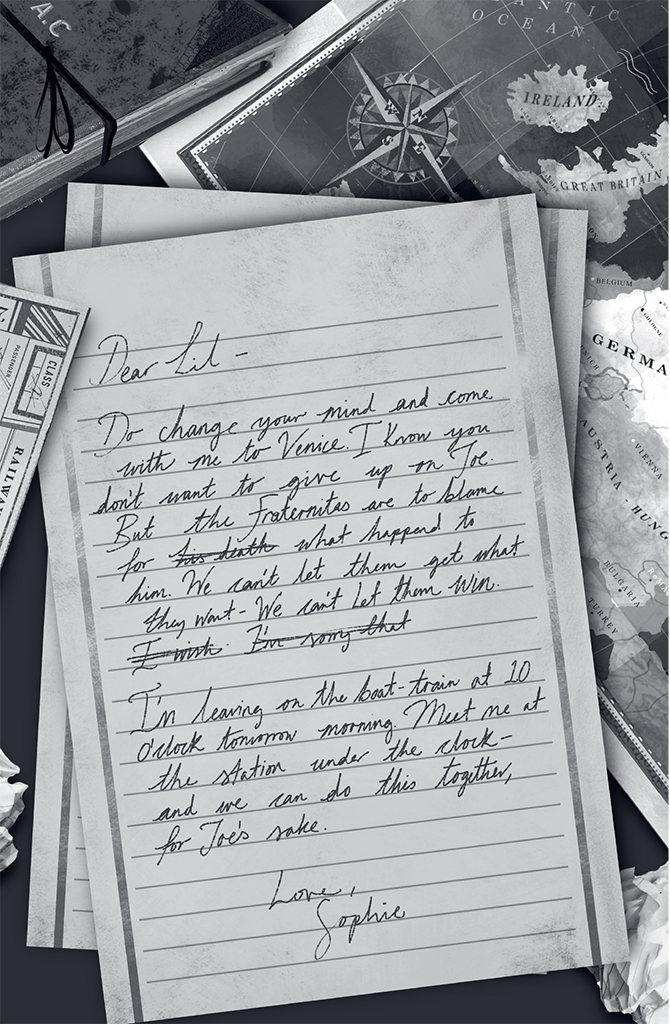 A.C
ANTIC
OCEAN
IRELAND
GREAT BRITAIN
BELGIUM
COLOGNE
GERMA
VIENNA
AUSTRIA - HUNG
BULGARIA
TURKEY
PASSENGER
CLASS
RAILWA
Dear Lil -
Do change your mind and come
with me to Venice. I know you
don't want to give up on Joe.
But the Fraternitas are to blame
for his death what happend to
him. We can't let them get what
they want - We can't let them win.
I wish I'm sorry that
I'm leaving on the boat-train at 10
O'clock tomorrow morning. Meet me at
the station under the clock-
and we can do this together,
for Joe's sake.
Love,
Sophie